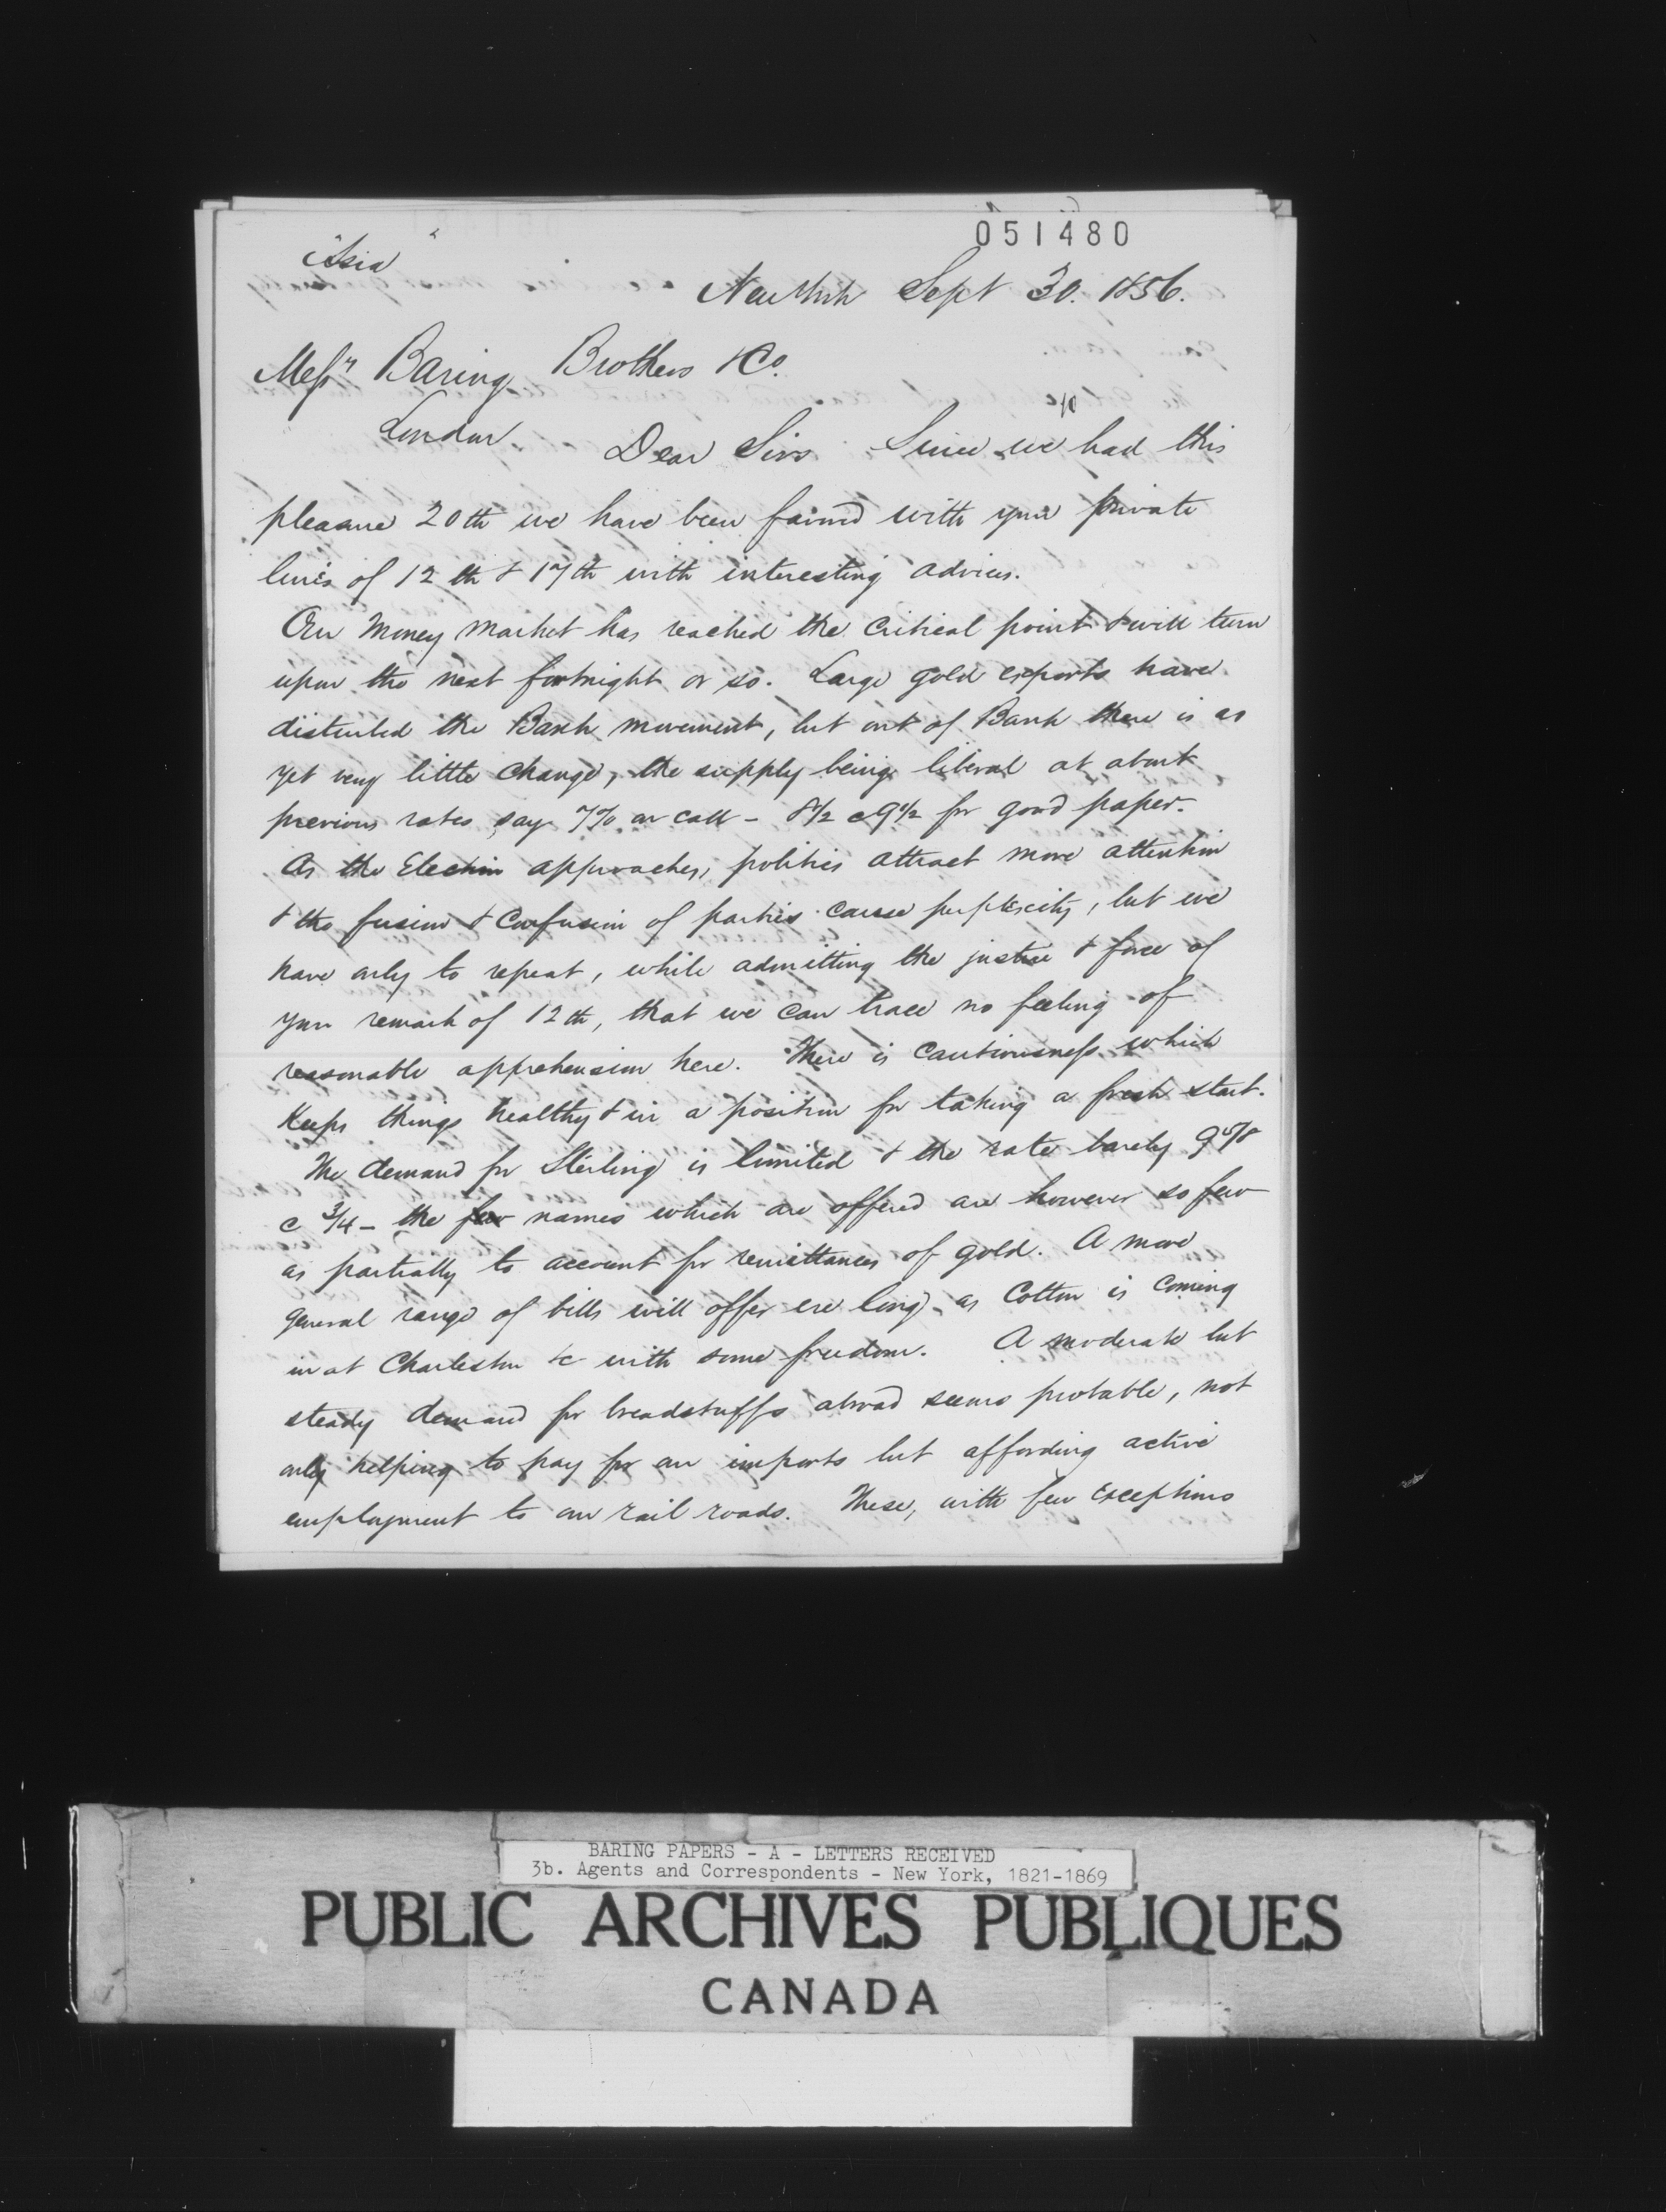 051480
"Asia"
New York Sept 30. 1856.
Messrs Baring Brothers & Co.
London
Dear Sirs Since we had this
pleasure 20th we have been favored with your private
lines of 12th & 17th with interesting advices.
Our Money Market has reached the critical point & will turn
upon the next fortnight or so. Large gold exports have
disturbed the Bank movement, but out of Bank there is as
yet very little change, the supply being liberal at about
previous rates say 7% on call - 8½ @ 9½ for good paper.
As the Election approaches, politics attract more attention
& the fusion & confusion of parties cause perplexity, but we
have only to repeat, while admitting the justice & force of
your remark of 12th, that we can trace no feeling of
reasonable apprehension here. There is cautiousness which
keeps things healthy & in a position for taking a fresh start.
The demand for Sterling is limited & the rate barely 9⅝
@ ¾ - the few names which are offered are however so few
as partially to account for remittances of gold. A more
general range of bills will offer ere long, as Cotton is coming
in at Charleston &c with some freedom. A moderate but
steady demand for breadstuffs abroad seems probable, not
only helping to pay for our imports but affording active
employment to our rail roads. These, with few exceptions
BARING PAPERS - A - LETTERS RECEIVED
3b. Agents and Correspondents - New York, 1821-1869
PUBLIC ARCHIVES PUBLIQUES
CANADA